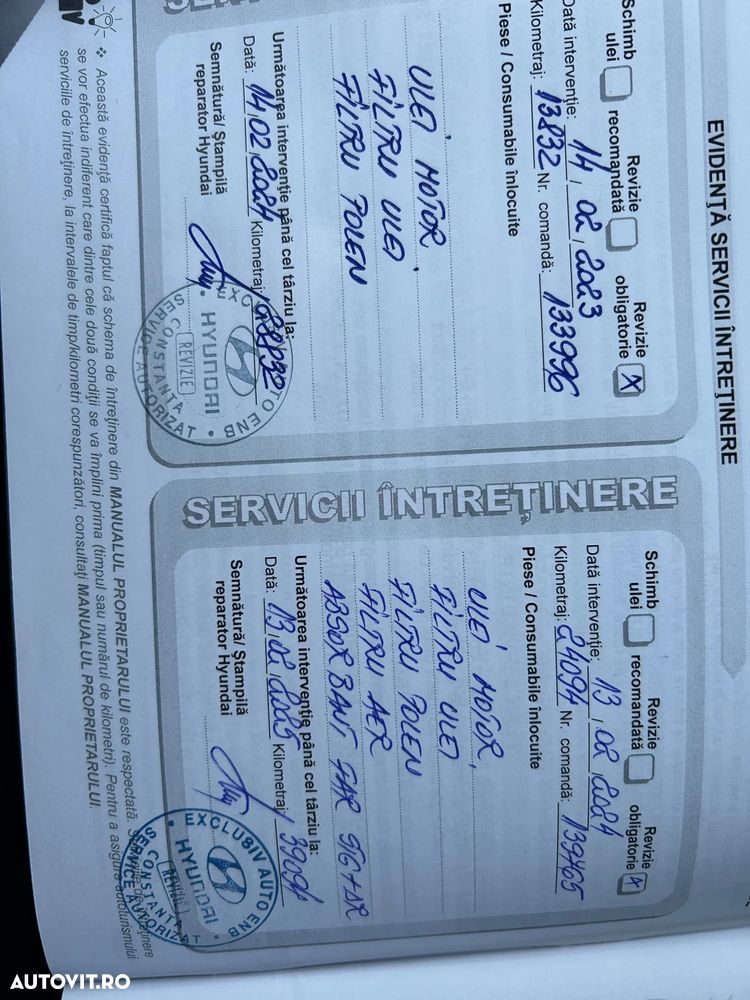 EVIDENȚĂ SERVICII ÎNTREȚINERE
Schimb ulei
Revizie recomandată
Revizie obligatorie X
Dată intervenție: 14 / 02 / 2023
Kilometraj: 13832 Nr. comandă: 133996
Piese / Consumabile înlocuite
ULEI MOTOR
FILTRU ULEI
FILTRU POLEN
Următoarea intervenție până cel târziu la:
Dată: 14 02 2024 Kilometraj: 28832
Semnătură/ Ștampilă
reparator Hyundai
HYUNDAI
REVIZIE
CONSTANTA
SERVICE AUTORIZAT
SERVICII ÎNTREȚINERE
Schimb ulei
Revizie recomandată
Revizie obligatorie X
Dată intervenție: 13 / 02 / 2024
Kilometraj: 24094 Nr. comandă: 139465
Piese / Consumabile înlocuite
ULEI MOTOR
FILTRU ULEI
FILTRU POLEN
FILTRU AER
ABSORBANT FAR STG+DR
Următoarea intervenție până cel târziu la:
Dată: 13 02 2025 Kilometraj: 39094
Semnătură/ Ștampilă
reparator Hyundai
EXCLUSIV AUTO ENB
HYUNDAI
REVIZIE
CONSTANTA
SERVICE AUTORIZAT
❖ Această evidență certifică faptul că schema de întreținere din MANUALUL PROPRIETARULUI este respectată. întreținere
se vor efectua indiferent care dintre cele două condiții se va împlini prima (timpul sau numărul de kilometri). Pentru a asigura autoturismului
serviciile de întreținere, la intervalele de timp/kilometri corespunzători, consultați MANUALUL PROPRIETARULUI.
AUTOVIT.RO